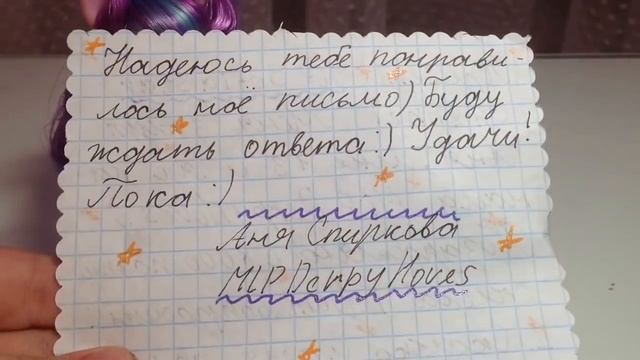 Надеюсь тебе понрави-
лось моё письмо) Буду
ждать ответа:) Удачи!
Пока:)
Аня Спиркова
MLP Derpy Hoves